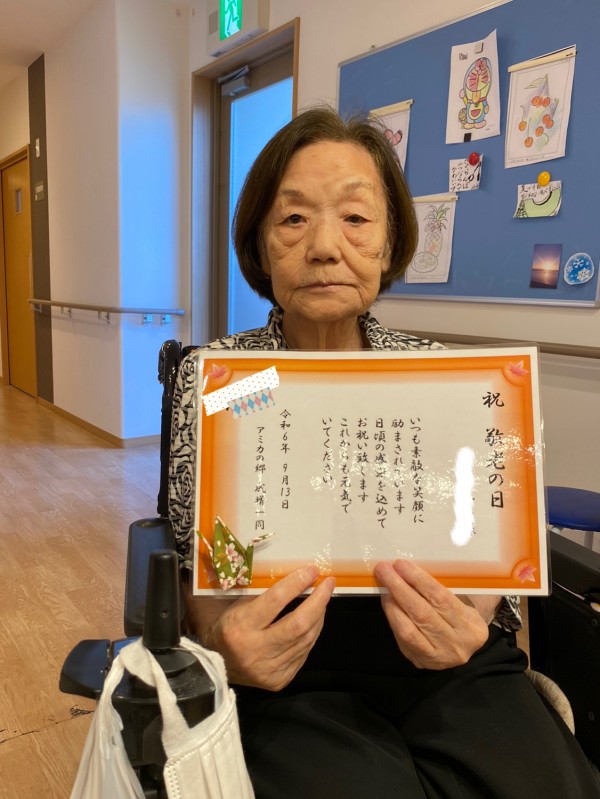 祝 敬老の日
様
いつも素敵な笑顔に
励まされています
日頃の感謝を込めて
お祝い致します
これからも元気で
いてください
令和6年 9月13日
アミカの郷 一同